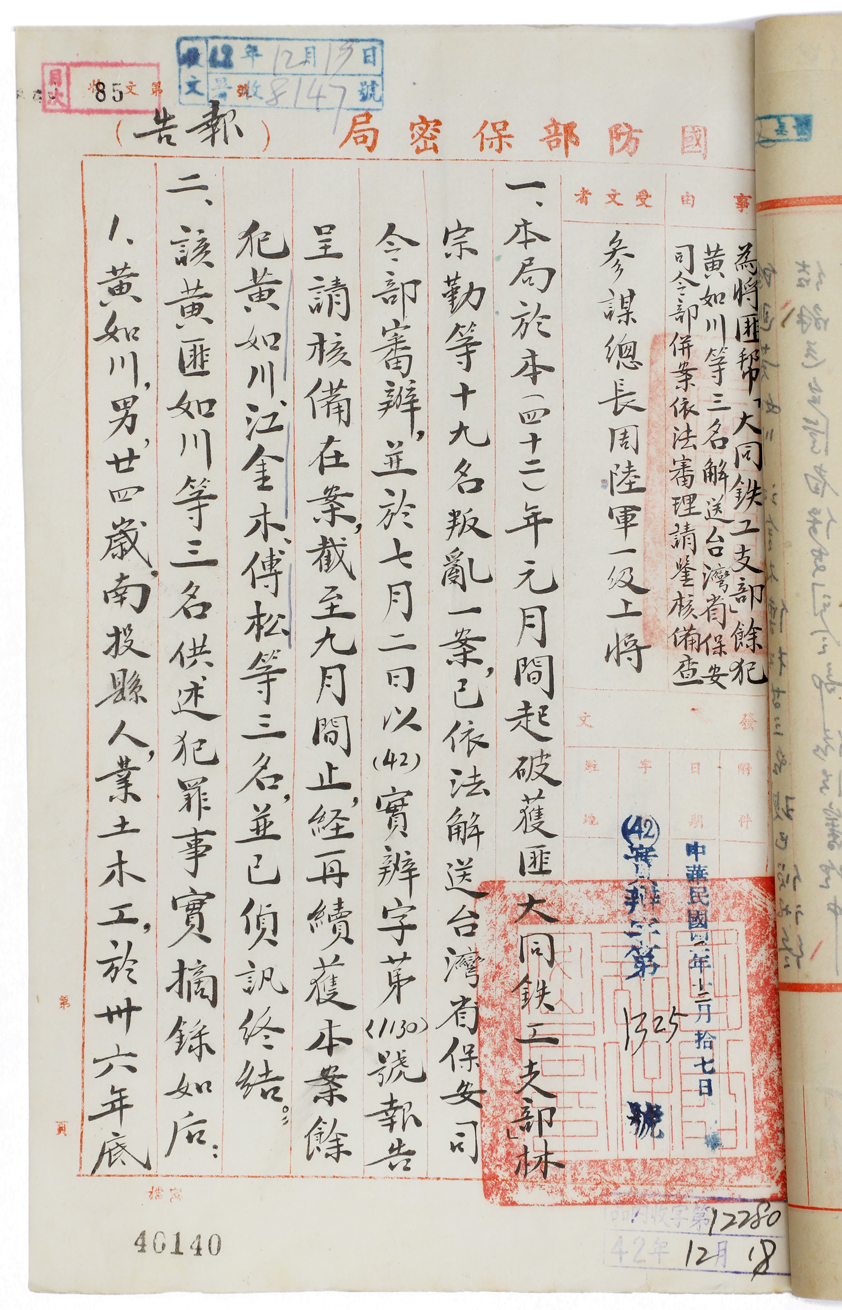 國防部保密局(報告)
收文 42年12月19日
收8147號
目次
收文第85
事由
為將匪幫「大同鉄工支部」餘犯
黃如川等三名解送台灣省保安
司令部併案依法審理請鑒核備查
受文者
參謀總長周陸軍一級上將
發文
附件
日期
中華民國四二年十二月拾七日
字號
(42)實辦字第1325號
駐地
一、本局於本(四十二)年元月間起破獲匪「大同鉄工支部」林
宗勤等十九名叛亂一案,已依法解送台灣省保安司
令部審辦,並於七月二日以(42)實辦字第(1130)號報告
呈請核備在案,截至九月間止,経再續獲本案餘
犯黃如川、江金木、傅松等三名,並已偵訊終結。
二、該黃匪如川等三名供述犯罪事實摘錄如后:
1、黃如川,男,廿四歲,南投縣人,業土木工,於卅六年底
第 頁
檔案
40140
收字第12280
42年12月18